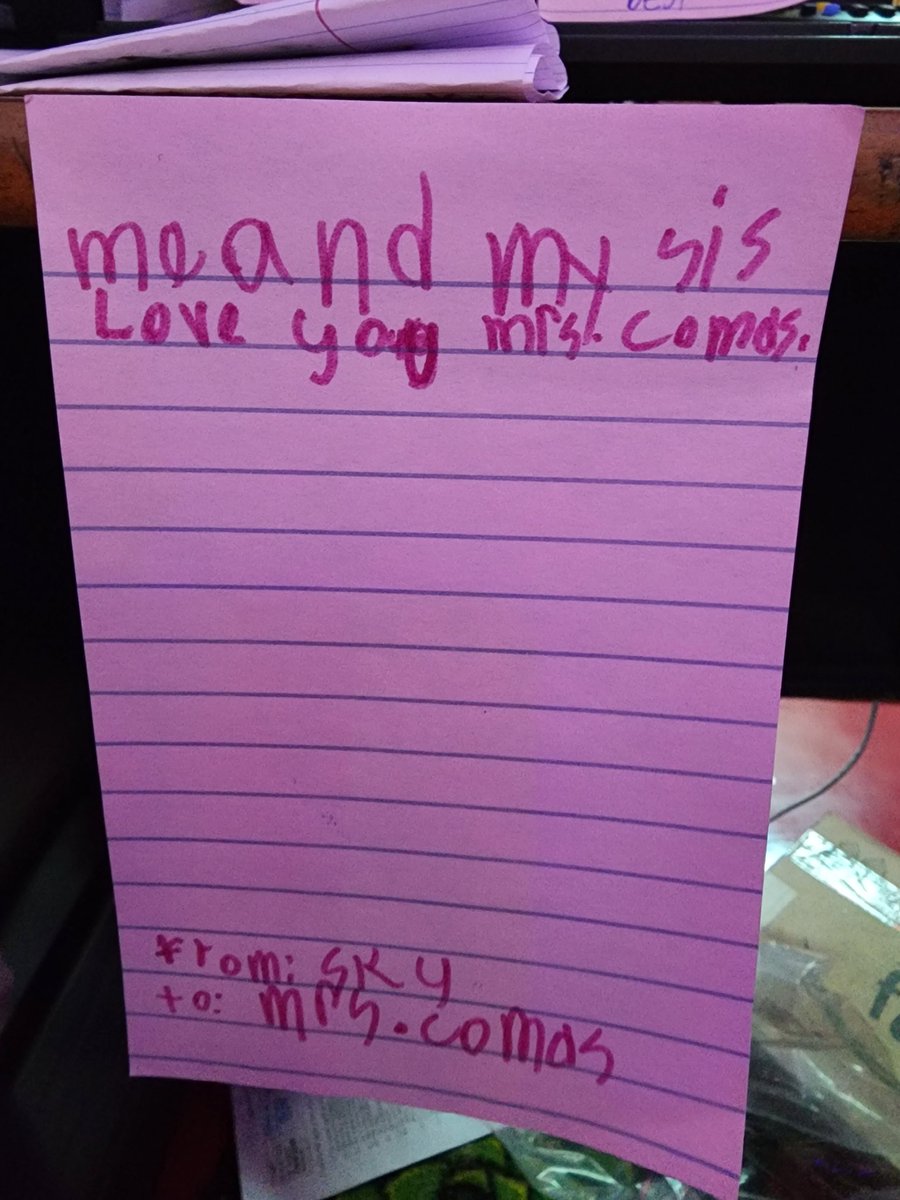 me and my sis
Love you mrs. comas.
From: SKY
to: mrs. comas